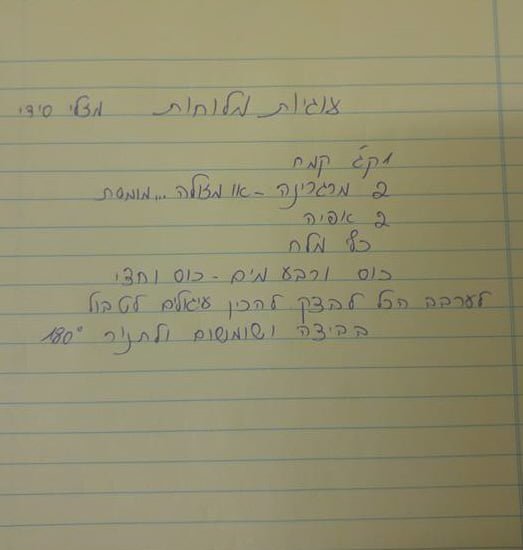 עוגיות מלוחות מצלי סידי
1 קג קמח
2 מרגרינה - או מזולה... מומסת
2 אפיה
כף מלח
כוס ורבע מים - כוס וחצי
לערבב הכל לבצק להכין עיגולים לטבול
בביצה ושומשום ולתנור 180°